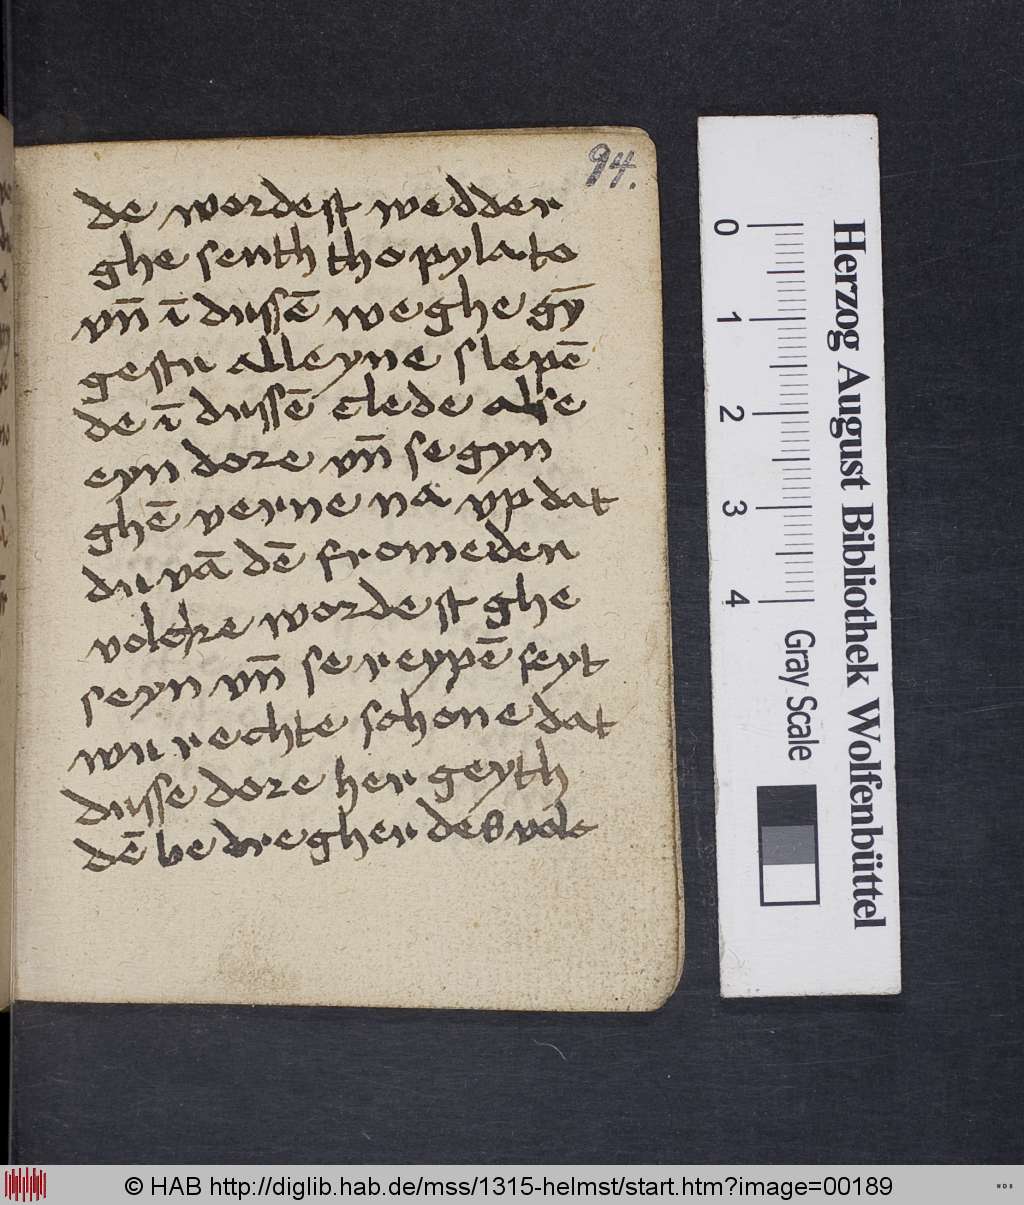 94.
de wordest wedder
ghe senth tho pylato
vn̄ ī dussē weghe gȳ
gestu alleyne slepē
de ī dussē clede alse
eyn dore vn̄ se gyn
ghē verne na vp dat
du vā dē fromeden
volcke wordest ghe
seyn vn̄ se reypē seyt
wu rechte schone dat
dusse dore her geyth
dē be dregher des volc
0
1
2
3
4
Gray Scale
Herzog August Bibliothek Wolfenbüttel
© HAB http://diglib.hab.de/mss/1315-helmst/start.htm?image=00189
WDB